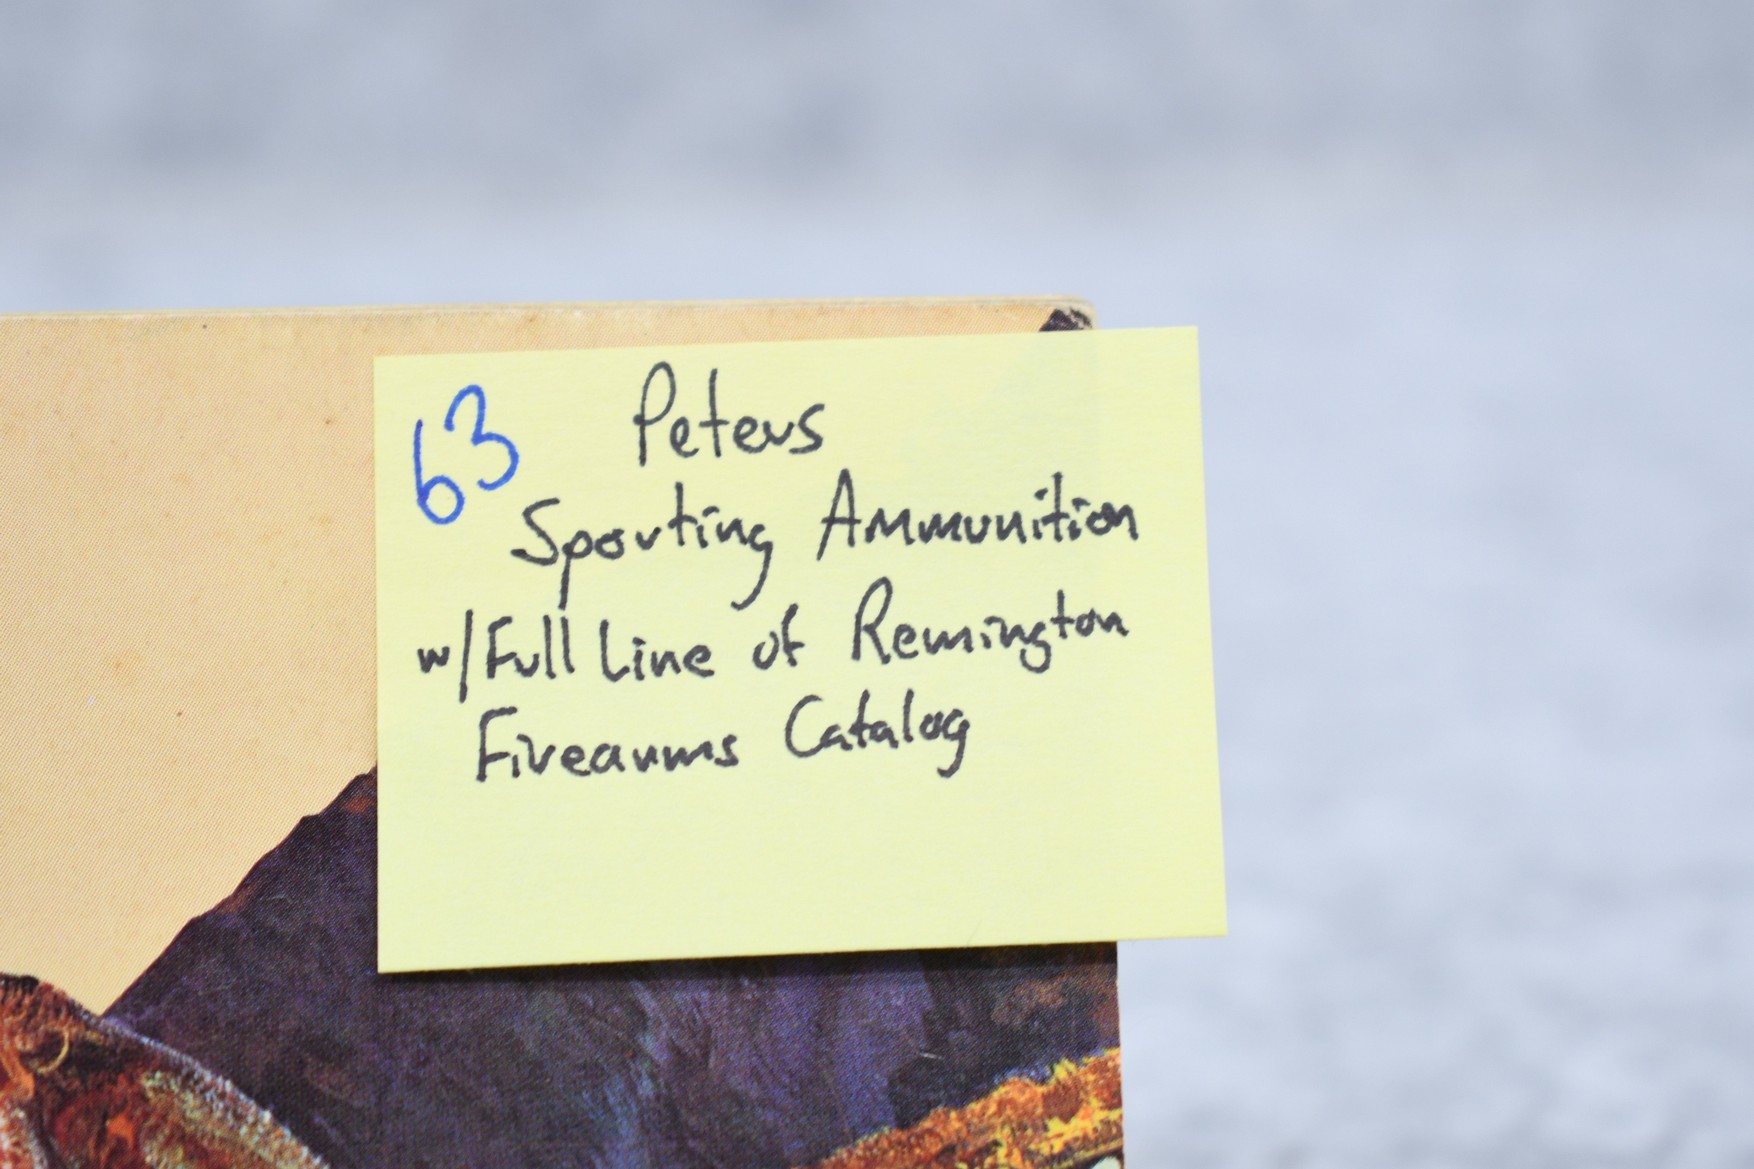 63 Peters
Sporting Ammunition
w/Full Line of Remington
Firearms Catalog